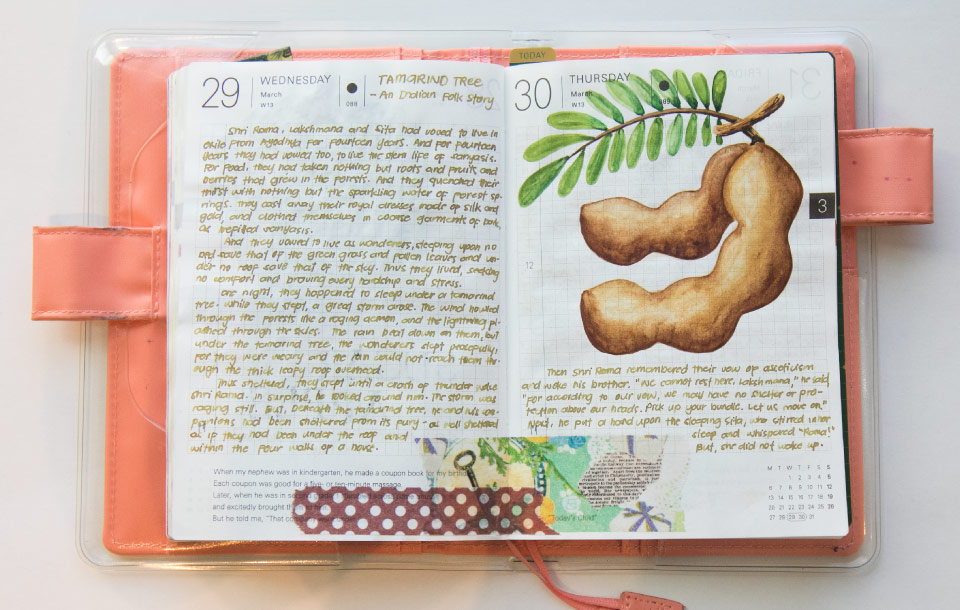 29
WEDNESDAY
March
W13
088
TAMARIND TREE
- An Indian Folk Story
Shri Rama, Lakshmana and Sita had vowed to live in
exile from Ayodhya for fourteen years. And for fourteen
years they had vowed too, to live the stern life of sanyasis.
For food, they had taken nothing but roots and fruits and
berries that grew in the forests. And they quenched their
thirst with nothing but the sparkling water of forest sp-
rings. They cast away their royal dresses made of silk and
gold, and clothed themselves in coarse garments of bark,
as befitted sanyasis.
And they vowed to live as wanderers, sleeping upon no
bed save that of the green grass and fallen leaves and un-
der no roof save that of the sky. Thus they lived, seeking
no comfort and braving every hardship and stress.
One night, they happened to sleep under a tamarind
tree. While they slept, a great storm arose. The wind howled
through the forests like a raging demon, and the lightning fl-
ashed through the skies. The rain beat down on them, but
under the tamarind tree, the wanderers slept peacefully,
for they were weary and the rain could not reach them thr-
ough the thick leafy roof overhead.
Thus sheltered, they slept until a crash of thunder woke
Shri Rama. In surprise, he looked around him. The storm was
raging still. But, beneath the tamarind tree, he and his com-
panions had been sheltered from its fury - as well sheltered
as if they had been under the roof and
within the four walls of a house.
When my nephew was in kindergarten, he made a coupon book for my
Each coupon was good for a five- or ten-minute massage.
Later, when he was in
and excitedly brought
But he told me, "That
"Today's Child"
TODAY
30
THURSDAY
March
W13
089
3
12
Then Shri Rama remembered their vow of asceticism
and woke his brother. "We cannot rest here, Lakshmana," he said,
"for according to our vow, we may have no shelter or pro-
tection above our heads. Pick up your bundle. Let us move on."
Next, he put a hand upon the sleeping Sita, who stirred
sleep and whispered "Rama!"
But, she did not wake up.
M T W T F S S
1 2 3 4 5
6 7 8 9 10 11 12
13 14 15 16 17 18 19
20 21 22 23 24 25 26
27 28 29 30 31